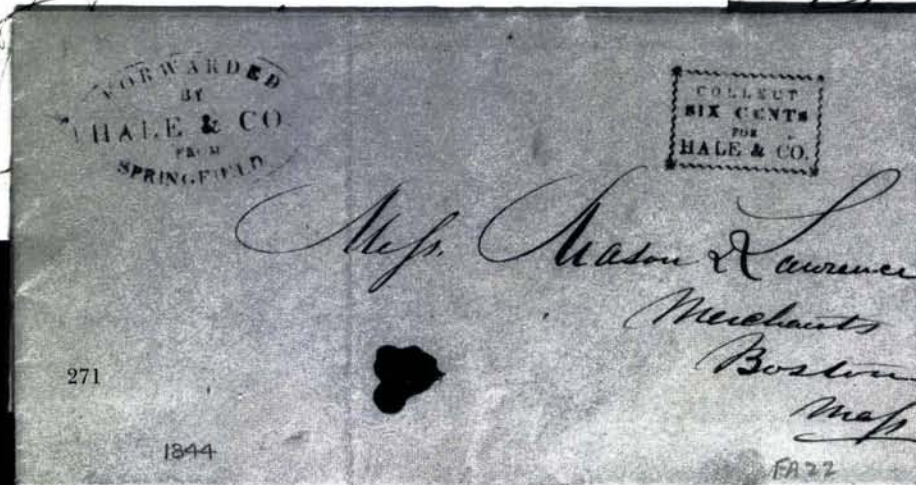 FORWARDED
BY
HALE & CO
FROM
SPRINGFIELD
COLLECT
SIX CENTS
FOR
HALE & CO.
Mess. Mason & Lawrence
Merchants
Boston
Mass
271
1844
FA22